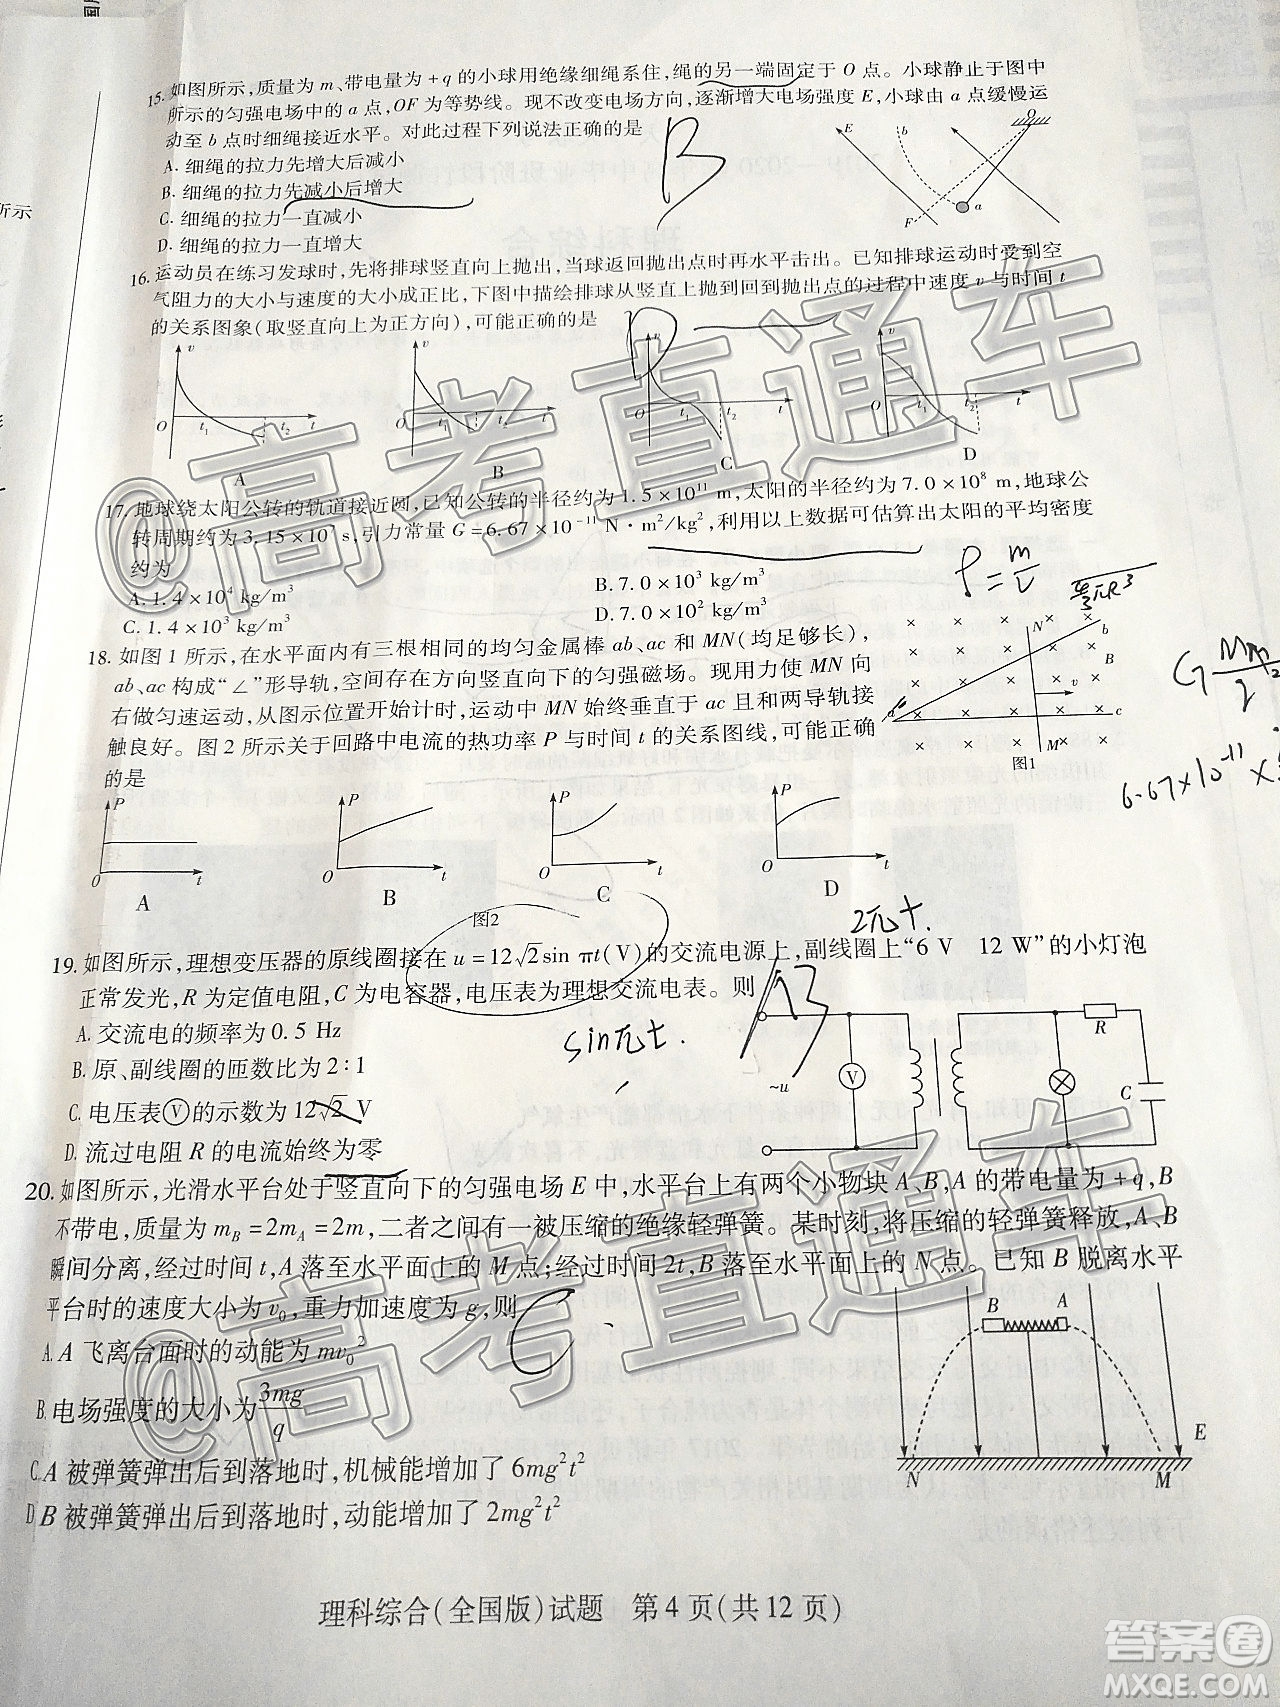 15. 如图所示,质量为 m、带电量为+q 的小球用绝缘细绳系住,绳的另一端固定于 O 点。小球静止于图中
所示的匀强电场中的 a 点,OF 为等势线。现不改变电场方向,逐渐增大电场强度 E,小球由 a 点缓慢运
动至 b 点时细绳接近水平。对此过程下列说法正确的是
A. 细绳的拉力先增大后减小
B. 细绳的拉力先减小后增大
C. 细绳的拉力一直减小
D. 细绳的拉力一直增大
B
E b O
F a
所示
16. 运动员在练习发球时,先将排球竖直向上抛出,当球返回抛出点时再水平击出。已知排球运动时受到空
气阻力的大小与速度的大小成正比,下图中描绘排球从竖直上抛到回到抛出点的过程中速度 v 与时间 t
的关系图象(取竖直向上为正方向),可能正确的是
v v v v
O t₁ t₂ t O t₁ t₂ t O t₁ t₂ t O t₁ t₂ t
A B C D
17. 地球绕太阳公转的轨道接近圆,已知公转的半径约为 1.5×10¹¹ m,太阳的半径约为 7.0×10⁸ m,地球公
转周期约为 3.15×10⁷ s,引力常量 G=6.67×10⁻¹¹ N·m²/kg²,利用以上数据可估算出太阳的平均密度
约为
A. 1.4×10⁴ kg/m³ B. 7.0×10³ kg/m³
C. 1.4×10³ kg/m³ D. 7.0×10² kg/m³
18. 如图 1 所示,在水平面内有三根相同的均匀金属棒 ab、ac 和 MN(均足够长),
ab、ac 构成“∠”形导轨,空间存在方向竖直向下的匀强磁场。现用力使 MN 向
右做匀速运动,从图示位置开始计时,运动中 MN 始终垂直于 ac 且和两导轨接
触良好。图 2 所示关于回路中电流的热功率 P 与时间 t 的关系图线,可能正确
的是
N b
B
v
a c
M
图1
6.67×10⁻¹¹×
P P P P
O t O t O t O t
A B C D
图2
2πt.
19. 如图所示,理想变压器的原线圈接在 u=12√2sin πt(V)的交流电源上,副线圈上“6 V 12 W”的小灯泡
正常发光,R 为定值电阻,C 为电容器,电压表为理想交流电表。则
A. 交流电的频率为 0.5 Hz
B. 原、副线圈的匝数比为 2∶1
C. 电压表Ⓥ的示数为 12√2 V
D. 流过电阻 R 的电流始终为零
sinπt.
~u V R C
20. 如图所示,光滑水平平台处于竖直向下的匀强电场 E 中,水平台上有两个小物块 A、B,A 的带电量为+q,B
不带电,质量为 m_B=2m_A=2m,二者之间有一被压缩的绝缘轻弹簧。某时刻,将压缩的轻弹簧释放,A、B
瞬间分离,经过时间 t,A 落至水平面上的 M 点;经过时间 2t,B 落至水平面上的 N 点。已知 B 脱离水平
平台时的速度大小为 v₀,重力加速度为 g,则
A. A 飞离台面时的动能为 mv₀²
B. 电场强度的大小为 3mg/q
C. A 被弹簧弹出后到落地时,机械能增加了 6mg²t²
D. B 被弹簧弹出后到落地时,动能增加了 2mg²t²
B A
E
N M
理科综合(全国版)试题 第 4 页(共 12 页)
@高考直通车
@高考直通车
答案圈
MXQE.COM